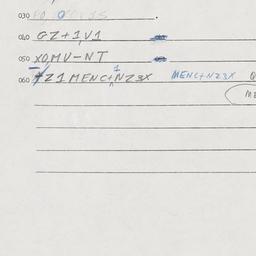 030
040 GZ+1V1
050 XOMV-NT
060 +Z1MENC+NZ3X MENC+NZ3X
1
ME